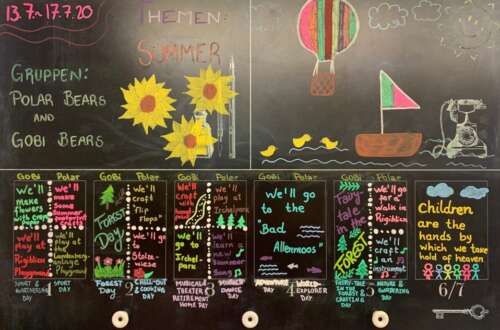 13.7.- 17.7.20
THEMEN:
SUMMER
GRUPPEN:
POLAR BEARS
AND
GOBI BEARS
GOBI
Polar
We'll
make
flowers
with crepe
paper
We'll
make
some
Summer
We'll
play at
Rigiblick
Playground
We'll
play at
the
Playground
SPORT &
DAY
1
SPORT
DAY
GOBI
Polar
FOREST
DAY
We'll
craft
"Flip
Flops"
We'll
go to
FOREST
DAY
2
CHILL-OUT
& COOKING
DAY
GOBI
Polar
We'll
craft
with
We'll
play at
Irchel
We'll
go to
Irchel-
park
We'll
learn a
new
Summer
Song
MUSICAL &
THEATER
RETIREMENT
HOME DAY
3
MUSIC &
DANCE
DAY
GOBI
Polar
We'll go
to the
"Bad
Allenmoos"
ADVENTURE
DAY
4
WORLD-
EXPLORER
DAY
GOBI
Polar
Fairy-
tale
in the
FOREST
We'll
go for
a
walk in
Rigiblick
We'll
craft
an
instrument
FAIRY-TALE
IN THE
FOREST &
CRAFTING
DAY
5
NATURE &
GARDENING
DAY
Children
are the
hands by
which we take
hold of heaven
6/7